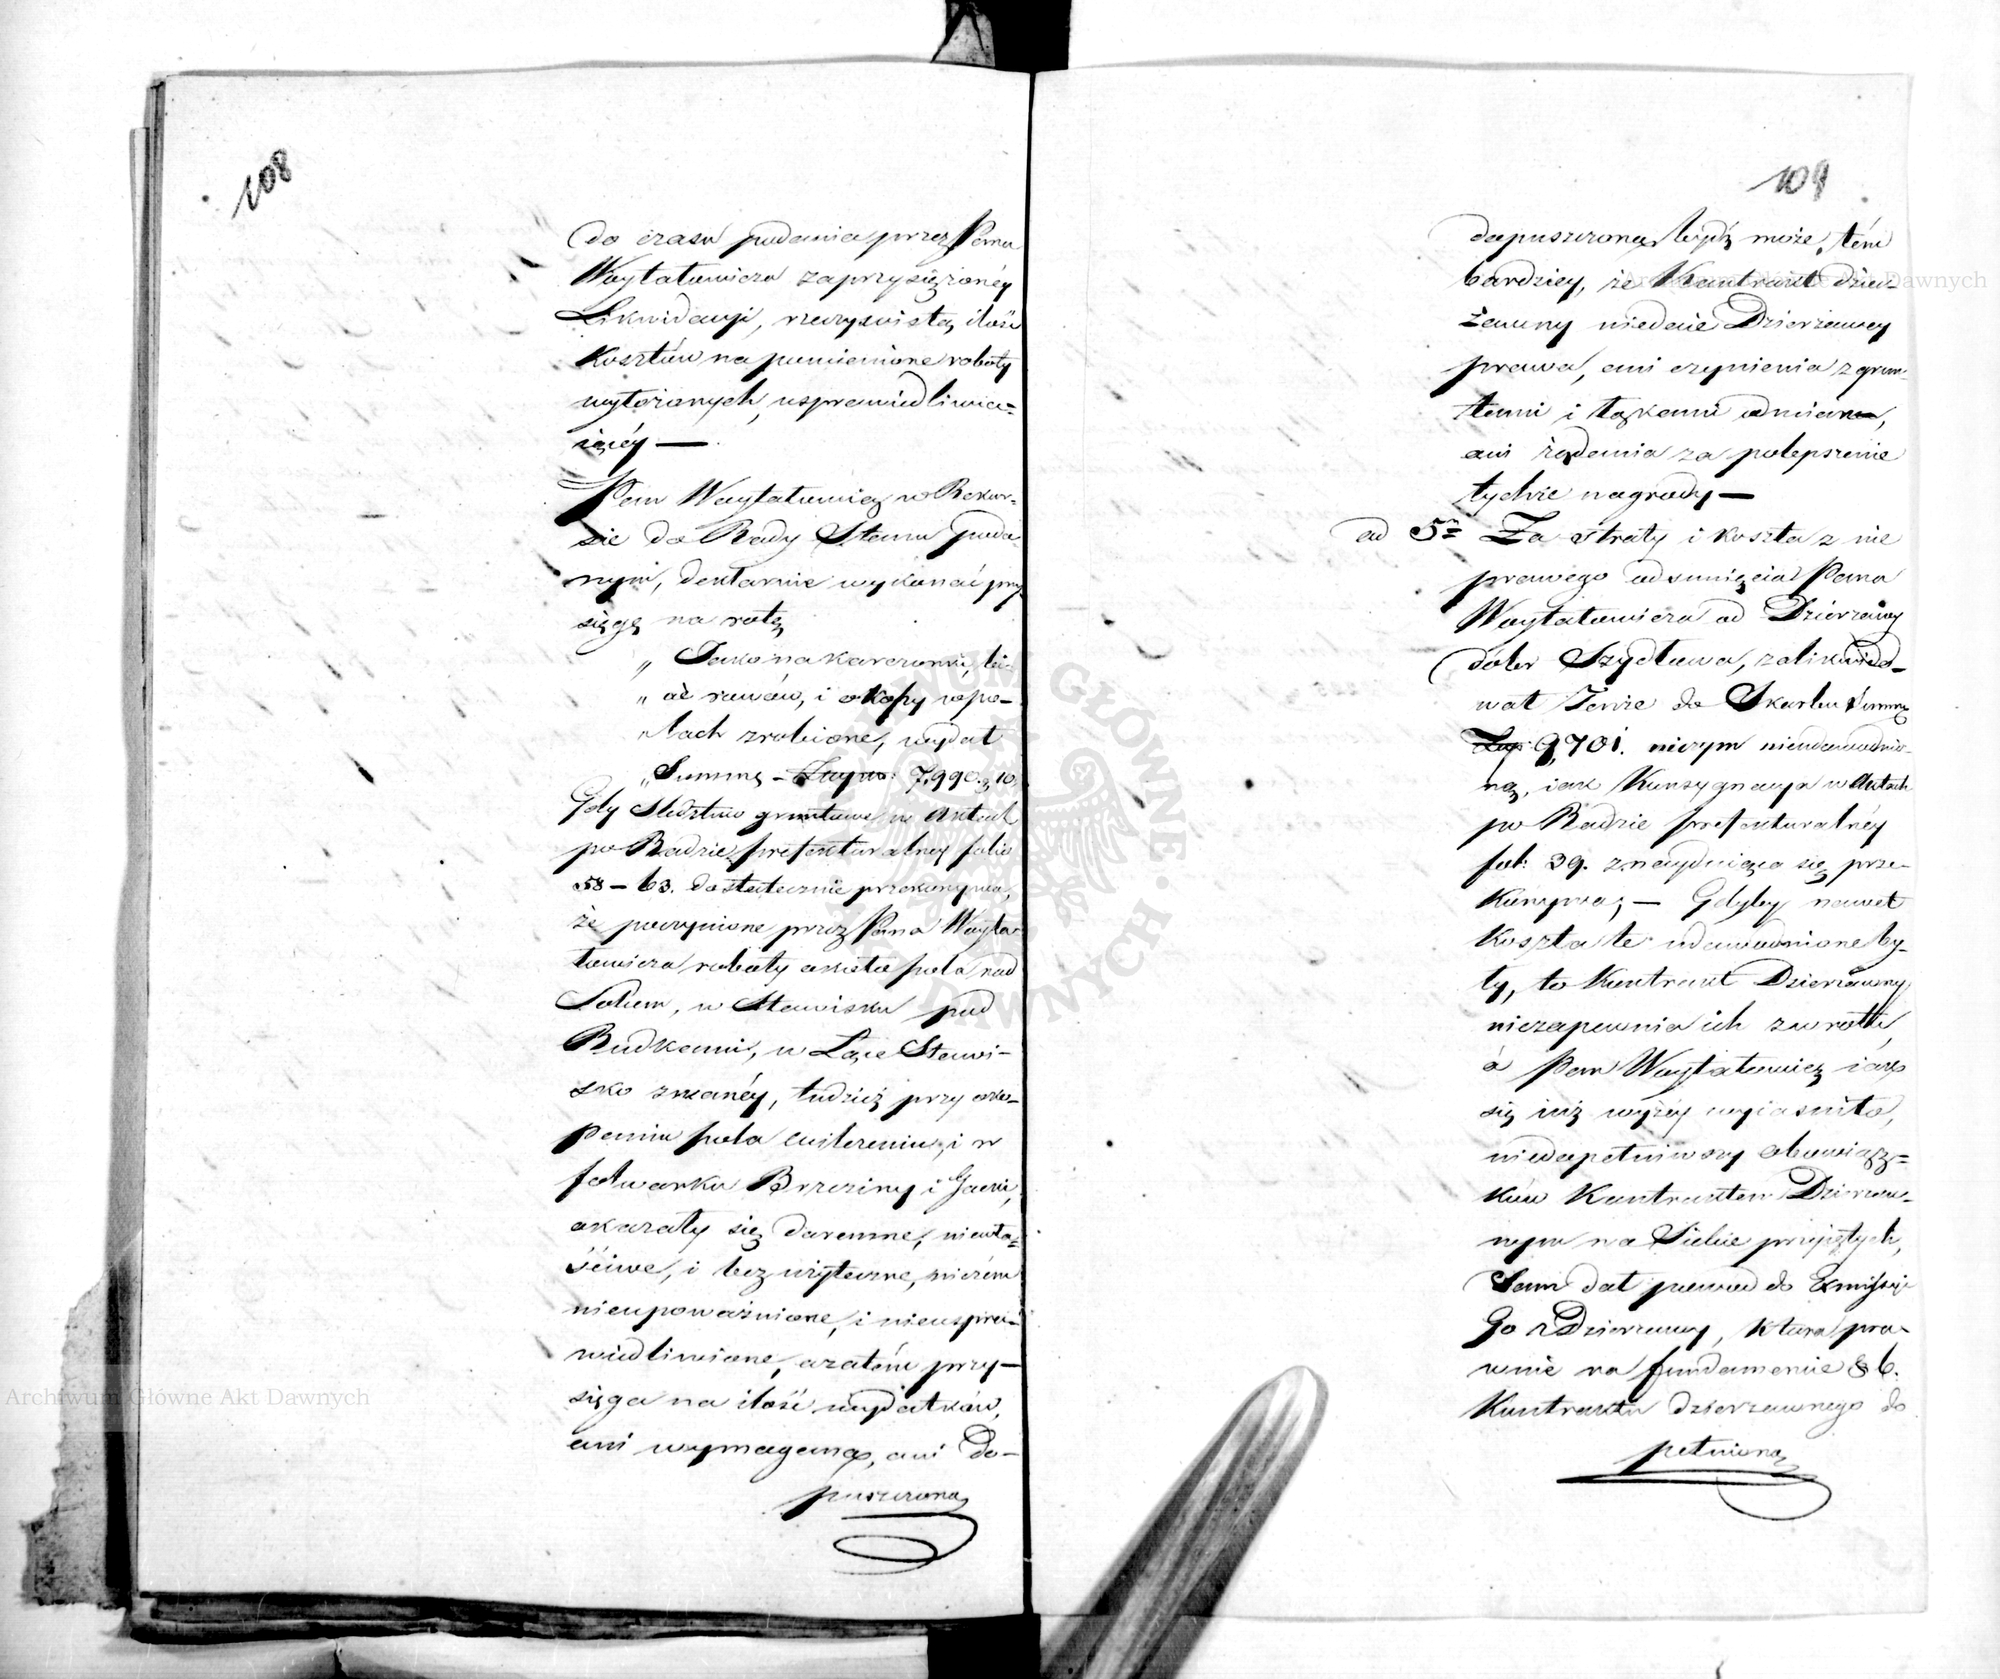 108
do czasu podania przez Pana
Woytatowicza zaprzysiężonéy
Likwidacyi, rzeczywistą ilość
kosztów na pomienione roboty
wyłożonych, usprawiedliwia-
iącéy —
Pan Woytatowicz w Rekur-
sie do Rady Stanu poda-
nym, deklaruie wykonać przy
sięgę na rotę
„ Jako na karczunki, bi-
„ cie rowów, i okopy w po-
„ lach zrobione, wydał
„ Summę – Złłpo: 7,990. g 10.
Gdy Śledztwo gruntowe w Aktach
po Radzie prefekturalney folio
58 – 63. dostatecznie przekonywa,
że poczynione przez Pana Woyta-
towicza roboty około pola nad
Sołum, w Stawisku pod
Budkami, w Łące Stawi-
sko zwanéy, tudzież przy oko-
paniu pola i w
folwarku Brzeziny i Gacki,
okazały się daremne, niewła-
ściwe, i bezużyteczne, niczém
nieupoważnione, i nieuspra-
wiedliwione, azatém przy-
sięga na ilość wydatków,
ani wymaganą, ani do-
puszczoną
109
dopuszczoną bydź może, tém
bardziey, że Kontrakt dzier-
żawny niedaie Dzierżawcy
prawa, ani czynienia z grun-
tami i łąkami odmian,
ani żądania za polepszenie
tychże nagrody —
ad 5o Za straty i koszta z nie
prawego odsunięcia Pana
Woytatowicza od Dzierżawy
dóbr Szydłowa, zalikwido-
wał Tenże do Skarbu Summę
Złłp: 9,701. niczym nieudowodnio-
ną, iak Konsygnacya w Aktach
po Radzie prefekturalnéy
fol: 39. znayduiąca się prze-
konywa; — Gdyby nawet
koszta te udowodnione by-
ły, to Kontrakt Dzierżawny
niezapewnia ich zwrotu,
a Pan Woytatowicz iak
się iuż wyżéy wyiaśniło,
niedopełniwszy obowiąz-
ków Kontraktem Dzierżaw-
nym na Siebie przyiętych,
Sam dał powod do Exmissyi
Go z Dzierżawy, która pra-
wnie na fundamencie § 6.
Kontraktu dzierżawnego do
pełnioną
Archiwum Główne Akt Dawnych
Archiwum Główne Akt Dawnych